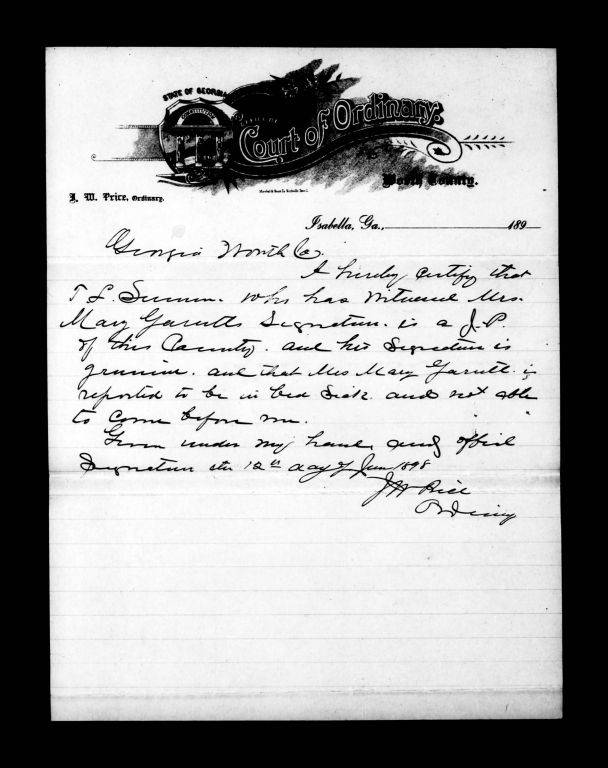 STATE OF GEORGIA
CONSTITUTION
Court of Ordinary.
Worth County.
J. W. Price, Ordinary.
Isabella, Ga., 189
Georgia Worth Co.
I hereby certify that
T L. who has witnessed Mrs.
Mary Garretts Signature. is a J. P.
of this County. and his Signature is
genuine. and that Mrs Mary Garrett. is
reported to be in bed Sick. and not able
to come before me.
Given under my hand and official
Signature this 12th day of June 1898
J W Price
Ordinary